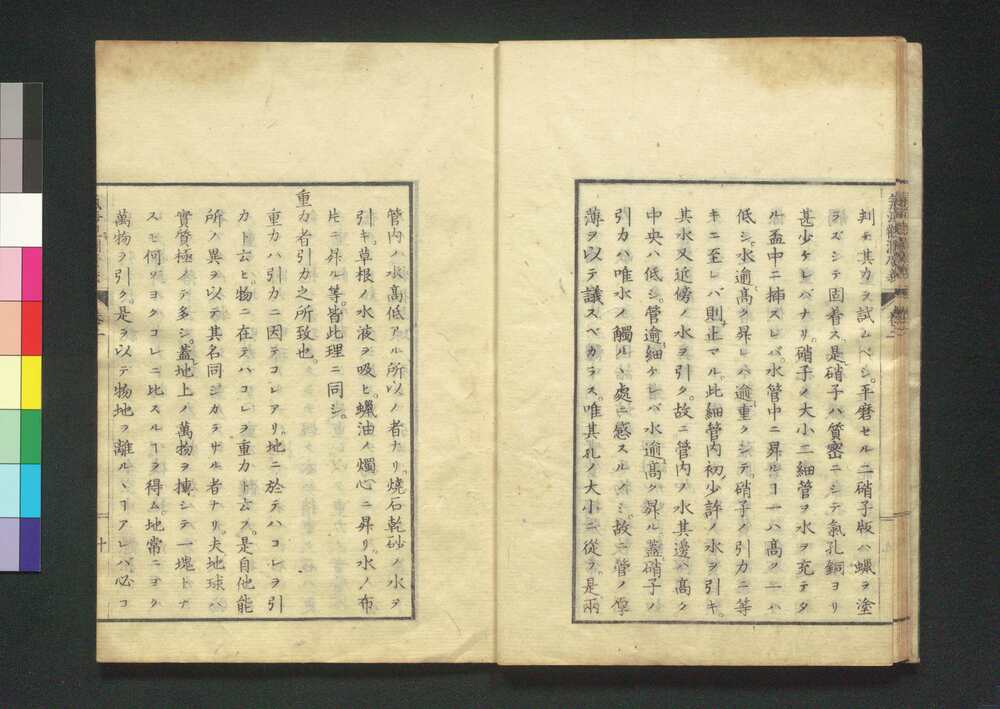 判チ其カヲ試ムベシ。平磨セル二硝子版ハ蠟ヲ塗
ラズシテ固着ス。是硝子ハ質密ニシテ氣孔銅ヨリ
甚少ケレバナリ。硝子ノ大小二細管ヲ水ヲ充テタ
ル盃中ニ挿スレバ。水管中ニ昇ルコ一ハ高ク一ハ
低シ。水逾高ク昇レハ逾重クシテ。硝子ノ引力ニ等
キニ至レバ則止マル。此細管内初少許ノ水ヲ引キ。
其水又近傍ノ水ヲ引ク。故ニ管内ノ水其邊ハ高ク
中央ハ低シ。管逾細ケレバ水逾高ク昇ル。蓋硝子ノ
引力ハ唯水ノ觸ルヽ處ニ感スルノミ。故ニ管ノ厚
薄ヲ以テ議スベカラス。唯其孔ノ大小ニ從フ。是兩
管内ノ水高低アル所以ノ者ナリ。燒石乾砂ノ水ヲ
引キ。草根ノ水液ヲ吸ヒ。蠟油ノ燭心ニ昇リ。水ノ布
片ニ昇ル等。皆此理ニ同シ。
重力者引力之所致也。
重力ハ引力ニ因テコレアリ。地ニ於テハコレヲ引
力ト云ヒ。物ニ在テハコレヲ重力ト云フ。是自他能
所ノ異ヲ以テ其名同シカラザル者ナリ。夫地球ハ
實質極メテ多シ。蓋地上ノ萬物ヲ摶シテ一塊トナ
スモ何ソヨクコレニ比スルヿヲ得ム。地常ニヨク
萬物ヲ引ク。是ヲ以テ物地ヲ離ルヽヿアレバ必コ
十